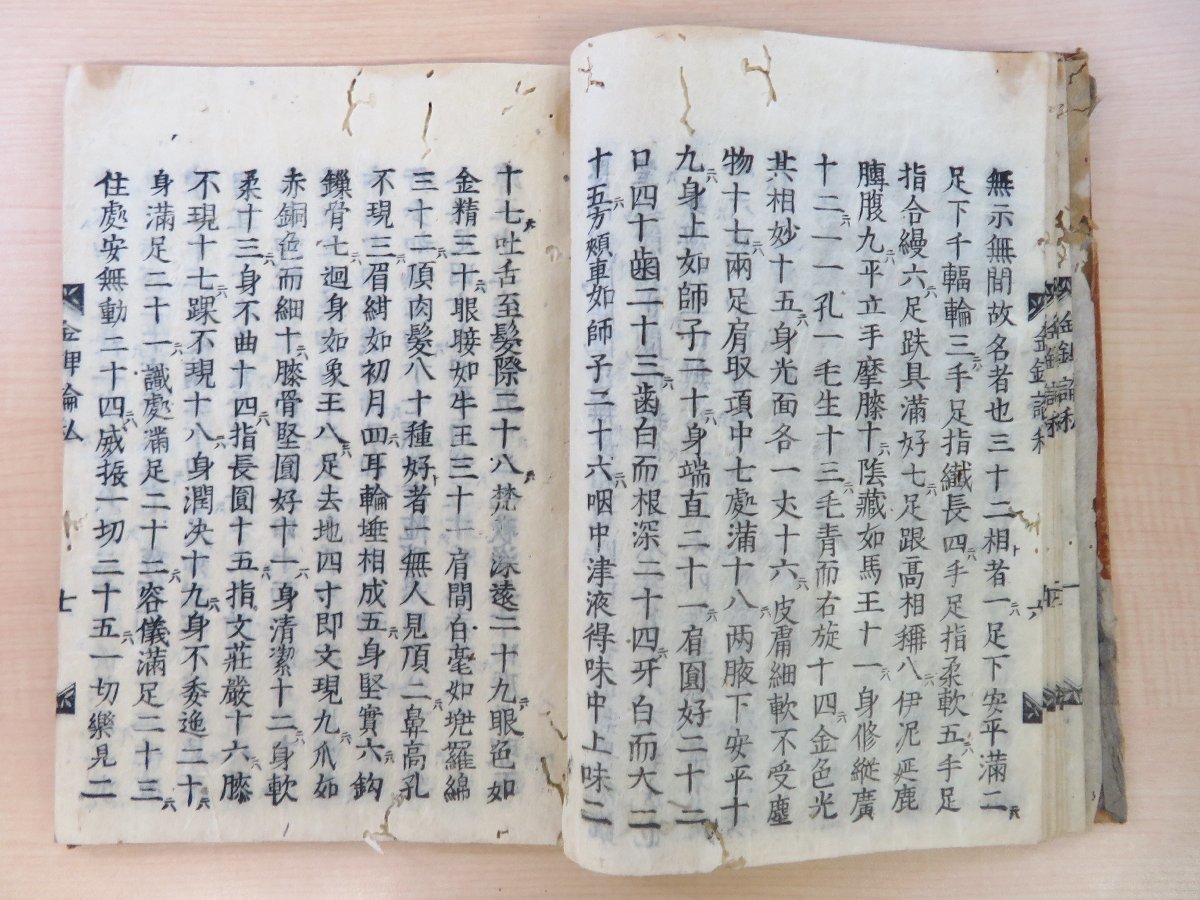 無示無間故名者也三十二相者一足下安平滿二
足下千輻輪三手足指纖長四手足指柔軟五手足
指合縵六足趺具滿好七足跟高相稱八伊泥延鹿
膊腹九平立手摩膝十陰藏如馬王十一身修縱廣
十二一一孔一毛生十三毛青而右旋十四金色光
其相妙十五身光面各一丈十六皮膚細軟不受塵
物十七兩足肩取項中七處滿十八两腋下安平十
九身上如師子二十身端直二十一肩圓好二十二
口四十齒二十三齒白而根深二十四牙白而大二
十五方頰車如師子二十六咽中津液得味中上味二
十七吐舌至髮際二十八梵深遠二十九眼色如
金精三十眼睫如牛王三十一眉間白毫如兜羅綿
三十二頂肉髮八十種好者一無人見頂二鼻高孔
不現三眉紺如初月四耳輪埀相成五身堅實六鈎
鏁骨七迴身如象王八足去地四寸即文現九爪如
赤銅色而細十膝骨堅圓好十一身清潔十二身軟
柔十三身不曲十四指長圓十五指文莊嚴十六膝
不現十七踝不現十八身潤决十九身不委迤二十
身滿足二十一識處滿足二十二容儀滿足二十三
住處安無動二十四威振一切二十五一切樂見二
金錍論私
七